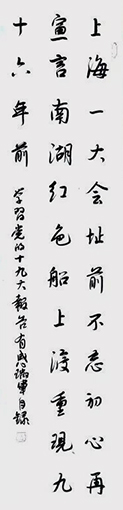 上海一大会址前不忘初心再
宣言南湖红色船上激重现九
十六年前
学习党的十九大报告有感